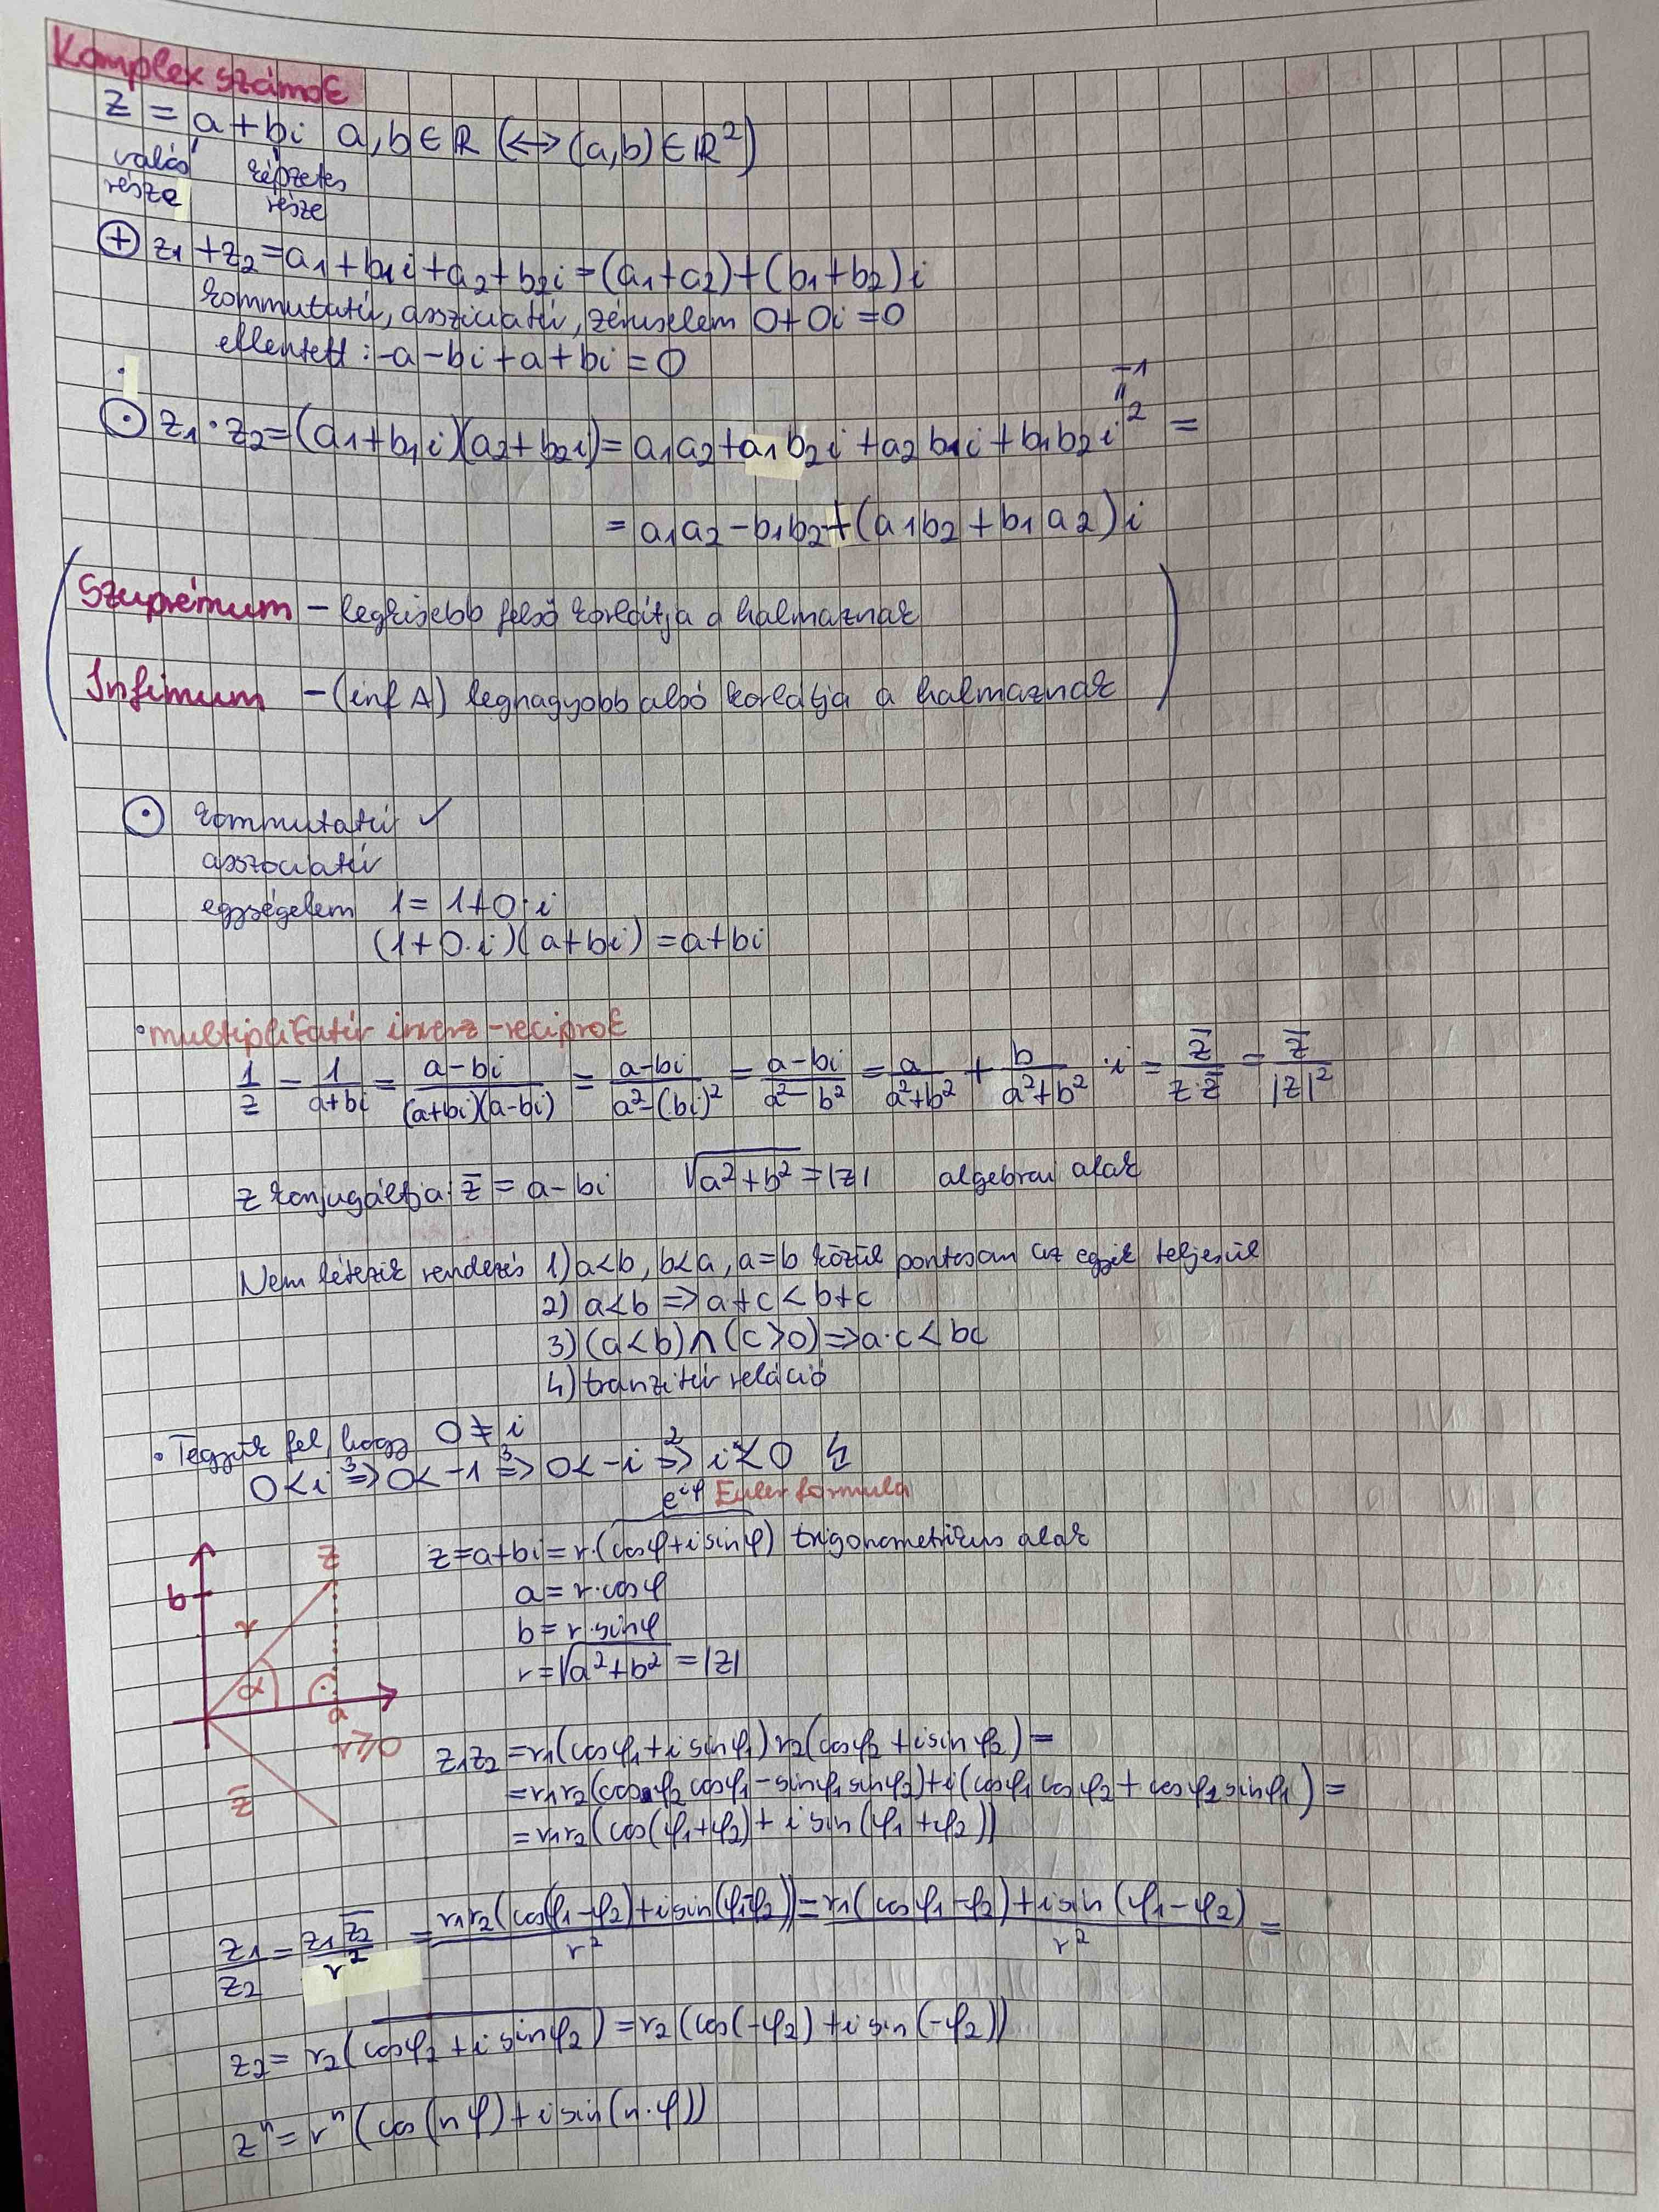 Komplex számok
z = a + bi a, b ∈ ℝ (↔ (a,b) ∈ ℝ²)
valós képzetes
része része
⊕ z₁ + z₂ = a₁ + b₁i + a₂ + b₂i = (a₁+a₂) + (b₁+b₂)i
kommutatív, asszociatív, zéruselem 0 + 0i = 0
ellentett: -a - bi + a + bi = 0
-1
॥
⊙ z₁ · z₂ = (a₁+b₁i)(a₂+b₂i) = a₁a₂ + a₁b₂i + a₂b₁i + b₁b₂i² =
= a₁a₂ - b₁b₂ + (a₁b₂ + b₁a₂)i
(Szuprémum - legkisebb felső korlátja a halmaznak
Infimum - (inf A) legnagyobb alsó korlátja a halmaznak)
⊙ kommutatív ✓
asszociatív
egységelem 1 = 1 + 0·i
(1+0·i)(a+bi) = a+bi
• multiplikatív inverz - reciprok
1/z = 1/(a+bi) = (a-bi)/((a+bi)(a-bi)) = (a-bi)/(a²-(bi)²) = (a-bi)/(a²-b²) = a/(a²+b²) + b/(a²+b²) · i = z̅/(z·z̅) = z̅/|z|²
z konjugáltja: z̅ = a - bi √(a²+b²) = |z| algebrai alak
Nem létezik rendezés 1) a<b, b<a, a=b közül pontosan az egyik teljesül
2) a<b => a+c < b+c
3) (a<b) ∧ (c>0) => a·c < bc
4) tranzitív reláció
• Tegyük fel, hogy 0 ≠ i
0 < i ³=> 0 < -1 ³=> 0 < -i ²=> i < 0 ↯
e^(iφ) Euler formula
z = a+bi = r·(cosφ + i sinφ) trigonometrikus alak
a = r·cosφ
b = r·sinφ
r = √(a²+b²) = |z|
b z r α a z̅ r≥0
z₁z₂ = r₁(cosφ₁ + i sinφ₁) r₂(cosφ₂ + i sinφ₂) =
= r₁r₂(cosφ₂ cosφ₁ - sinφ₁ sinφ₂) + i(cosφ₁ cosφ₂ + cosφ₂ sinφ₁) =
= r₁r₂(cos(φ₁+φ₂) + i sin(φ₁+φ₂))
z₁/z₂ = z₁z̅₂/r² = r₁r₂(cos(φ₁-φ₂) + i sin(φ₁-φ₂))/r² = r₁(cosφ₁-φ₂) + i sin(φ₁-φ₂)/r² =
z₂ = r₂(cosφ₂ + i sinφ₂) = r₂(cos(-φ₂) + i sin(-φ₂))
zⁿ = rⁿ(cos(nφ) + i sin(n·φ))